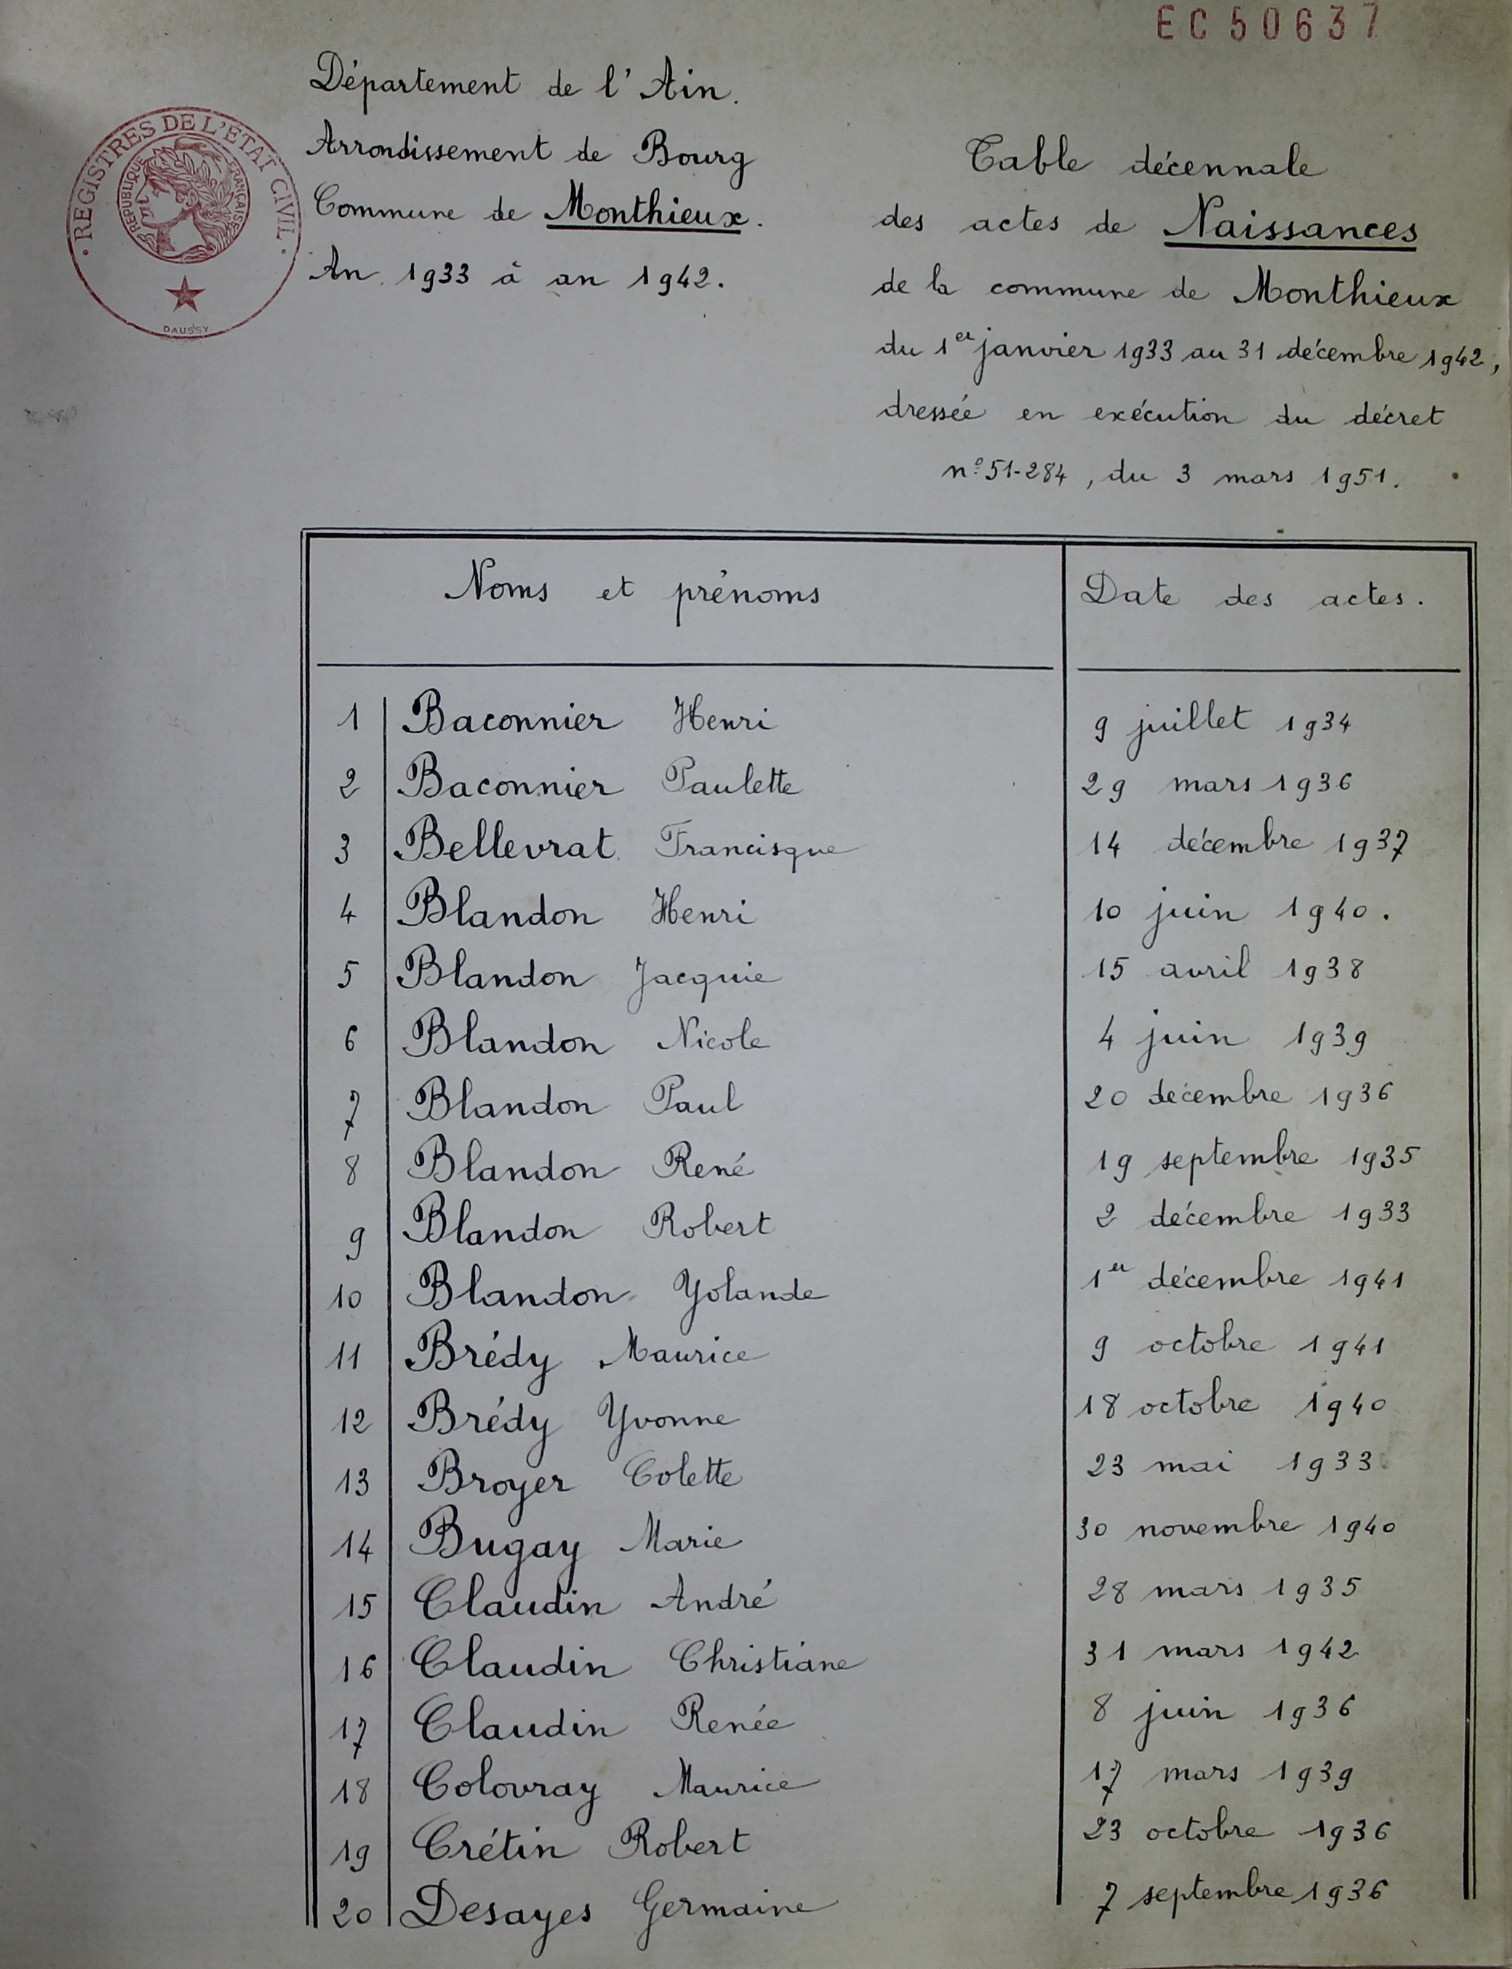 EC50637
Département de l'Ain.
Arrondissement de Bourg
Commune de Monthieux.
An 1933 à an 1942.
REGISTRES DE L'ETAT CIVIL
REPUBLIQUE FRANÇAISE
DAUSSY
Table décennale
des actes de Naissances
de la commune de Monthieux
du 1er janvier 1933 au 31 décembre 1942,
dressée en exécution du décret
n° 51-284, du 3 mars 1951.
Noms et prénoms Date des actes.
1 Baconnier Henri 9 juillet 1934
2 Baconnier Paulette 29 mars 1936
3 Bellevrat Francisque 14 décembre 1937
4 Blandon Henri 10 juin 1940.
5 Blandon Jacquie 15 avril 1938
6 Blandon Nicole 4 juin 1939
7 Blandon Paul 20 décembre 1936
8 Blandon René 19 septembre 1935
9 Blandon Robert 2 décembre 1933
10 Blandon Yolande 1er décembre 1941
11 Brédy Maurice 9 octobre 1941
12 Brédy Yvonne 18 octobre 1940
13 Broyer Colette 23 mai 1933
14 Bugay Marie 30 novembre 1940
15 Claudin André 28 mars 1935
16 Claudin Christiane 31 mars 1942
17 Claudin Renée 8 juin 1936
18 Colovray Maurice 17 mars 1939
19 Crétin Robert 23 octobre 1936
20 Desayes Germaine 7 septembre 1936